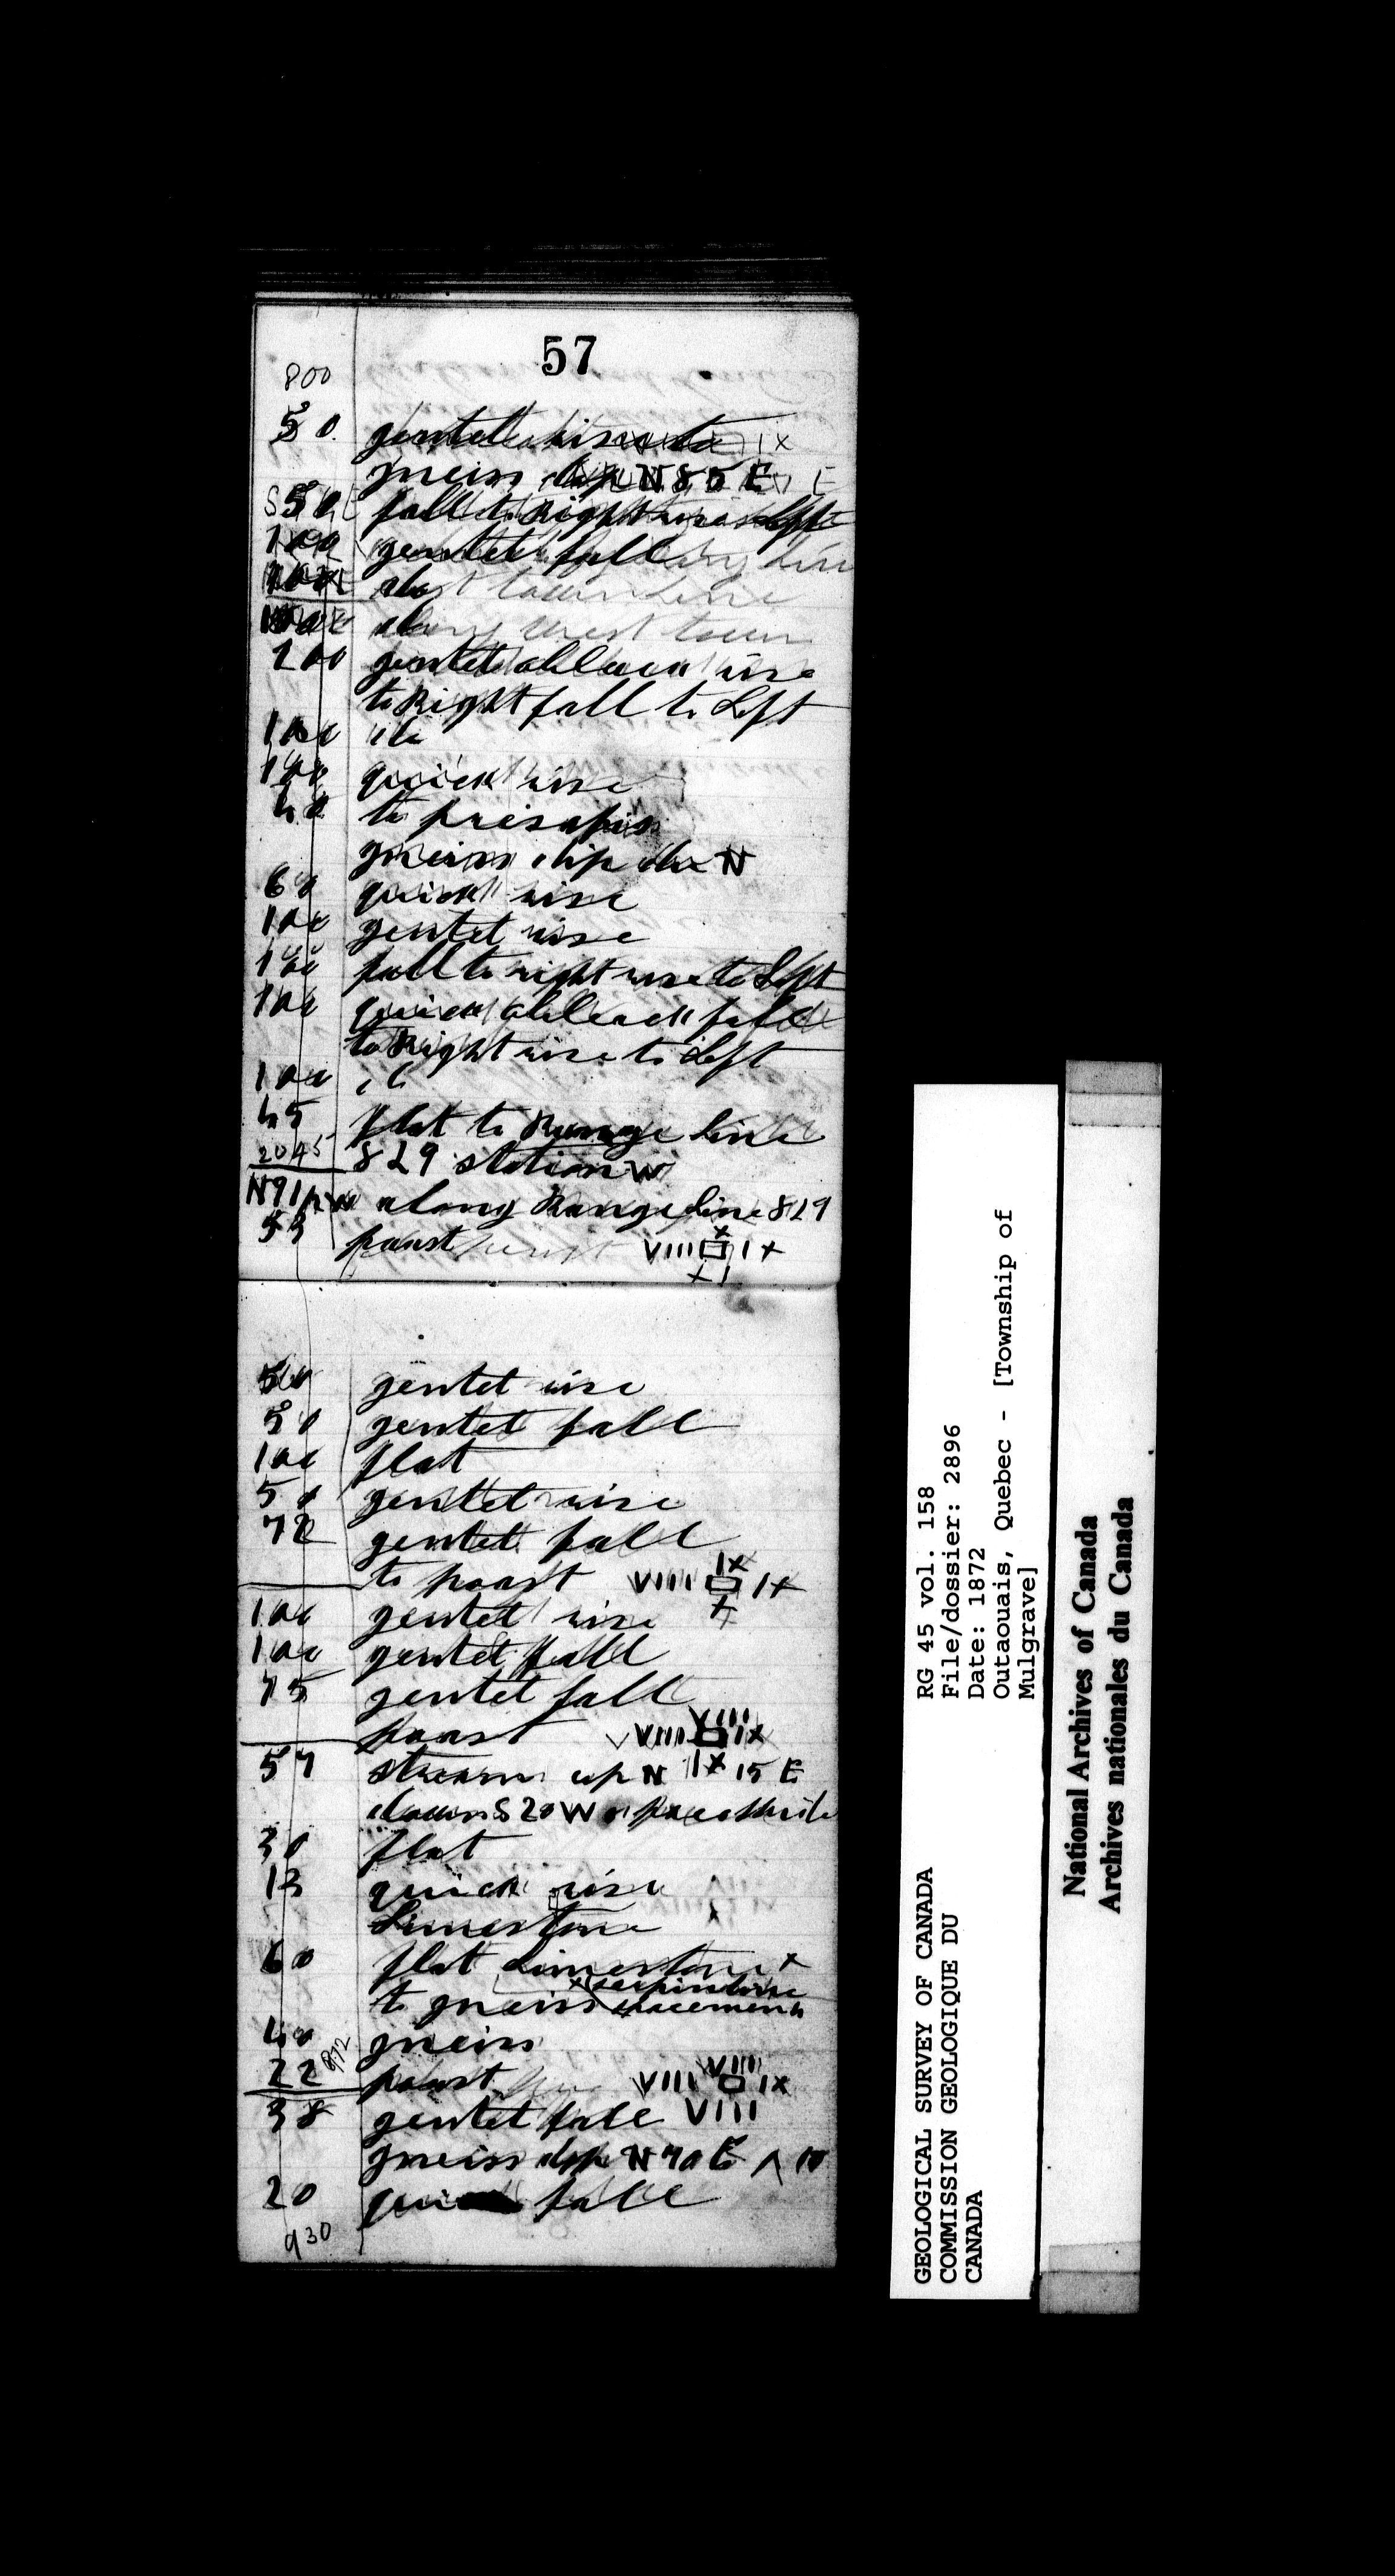 57
800
50 gentel rise to
gneiss dip N85E
50 fall to Right rise to left
100 gentel fall
100 do
100 do
200 gentel obleack rise
to Right fall to Left
100 do
100 quick rise
40 to prisapis
gneiss dip due N
60 quick rise
100 gentel rise
100 fall to right rise to Left
100 quick obleack fall
to Right rise to Left
100 do
45 flat to Range line
2045 8 & 9 station W
N91 W along Range line 8 & 9
53 poast VIII X IX
XI
50 gentel rise
50 gentel fall
100 flat
50 gentel rise
72 gentel fall
to poast VIII IX IX
X
100 gentel rise
100 gentel fall
75 gentel fall
poast VIII VIII IX
IX
57 stream up N 15 E
down S 20 W paces wide
30 flat
13 quick rise
Limestone
60 flat Limestone x
to gneiss x serpintine
40 gneiss
22 872 poast VIII VIII IX
VIII
38 gentel fall
gneiss dip N 70 E ^ 10
20 fall
930
GEOLOGICAL SURVEY OF CANADA RG 45 vol. 158
COMMISSION GEOLOGIQUE DU File/dossier: 2896
CANADA Date: 1872
Outaouais, Quebec - [Township of
Mulgrave]
National Archives of Canada
Archives nationales du Canada